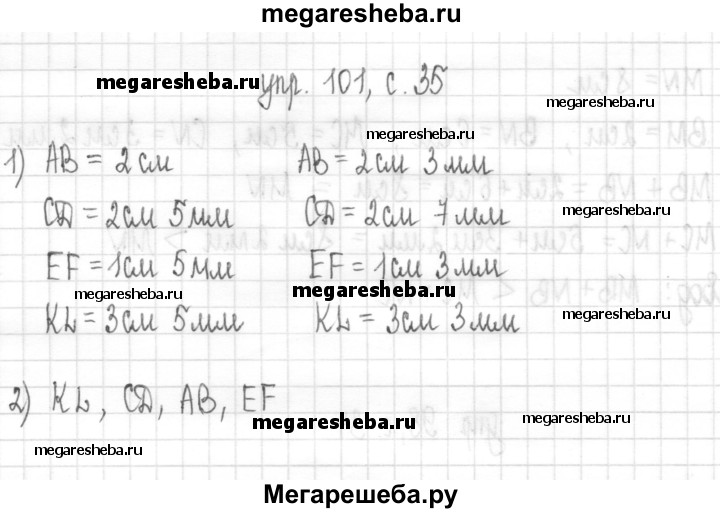 megaresheba.ru
megaresheba.ru упр. 101, с. 35
megaresheba.ru
megaresheba.ru
1) AB = 2 см AB = 2 см 3 мм
CD = 2 см 5 мм CD = 2 см 7 мм
megaresheba.ru
EF = 1 см 5 мм EF = 1 см 3 мм
megaresheba.ru megaresheba.ru
KL = 3 см 5 мм KL = 3 см 3 мм
megaresheba.ru
2) KL, CD, AB, EF
megaresheba.ru
megaresheba.ru megaresheba.ru
Мегарешеба.ру